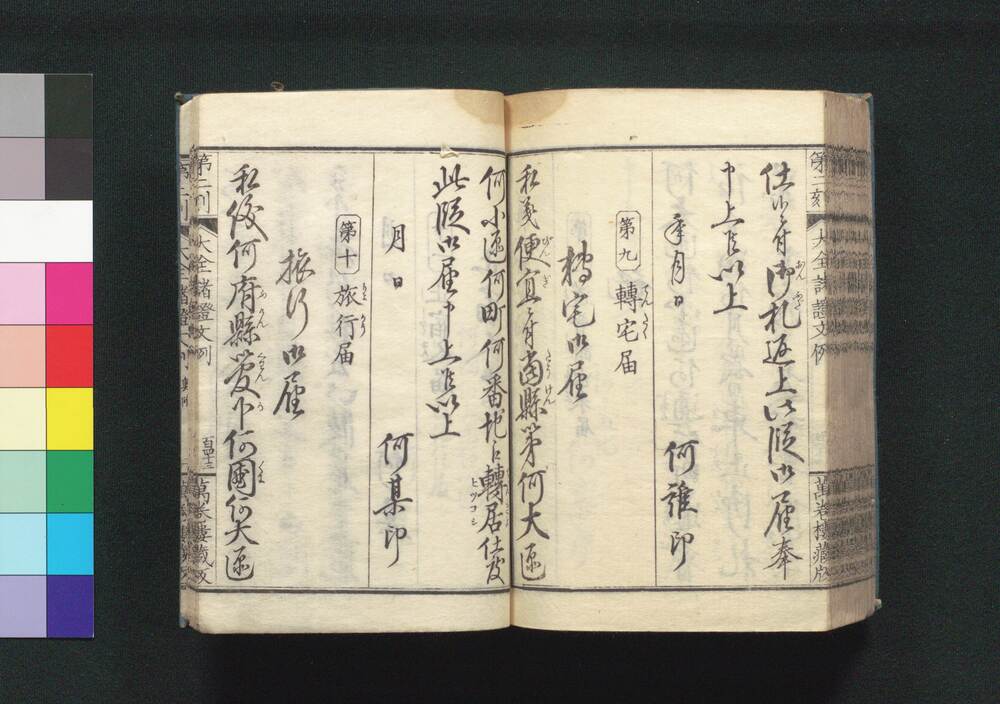 第二刻
大全諸證文例
萬巻楼藏版
仕候ニ付御札返上此段御届奉
申上候以上
年月日
何誰印
第九 轉宅届
轉宅御届
私義便宜ニ付当縣第何大區
何小區何町何番地江轉居仕候
此段御届申上候以上
月日
何某印
第十 旅行届
旅行御届
私儀何府縣管下何國何大區
第二刻
大全諸證文例
百四十三
萬巻樓藏版